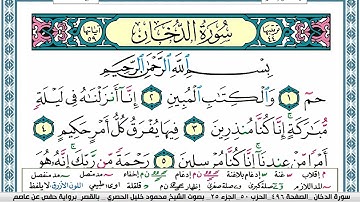 سُورَةُ الدُّخَانِ
بِسْمِ اللَّهِ الرَّحْمَٰنِ الرَّحِيمِ
حمٓ ١ وَالْكِتَابِ الْمُبِينِ ٢ إِنَّا أَنزَلْنَاهُ فِي لَيْلَةٍ
مُّبَارَكَةٍ إِنَّا كُنَّا مُنذِرِينَ ٣ فِيهَا يُفْرَقُ كُلُّ أَمْرٍ حَكِيمٍ ٤
أَمْرًا مِّنْ عِندِنَا إِنَّا كُنَّا مُرْسِلِينَ ٥ رَحْمَةً مِّن رَّبِّكَ إِنَّهُ هُوَ
سورة الدخان ٤٩٦ الحزب ٥٠ الجزء ٢٥ بصوت الشيخ محمود خليل الحصري بالقصر برواية حفص عن عاصم